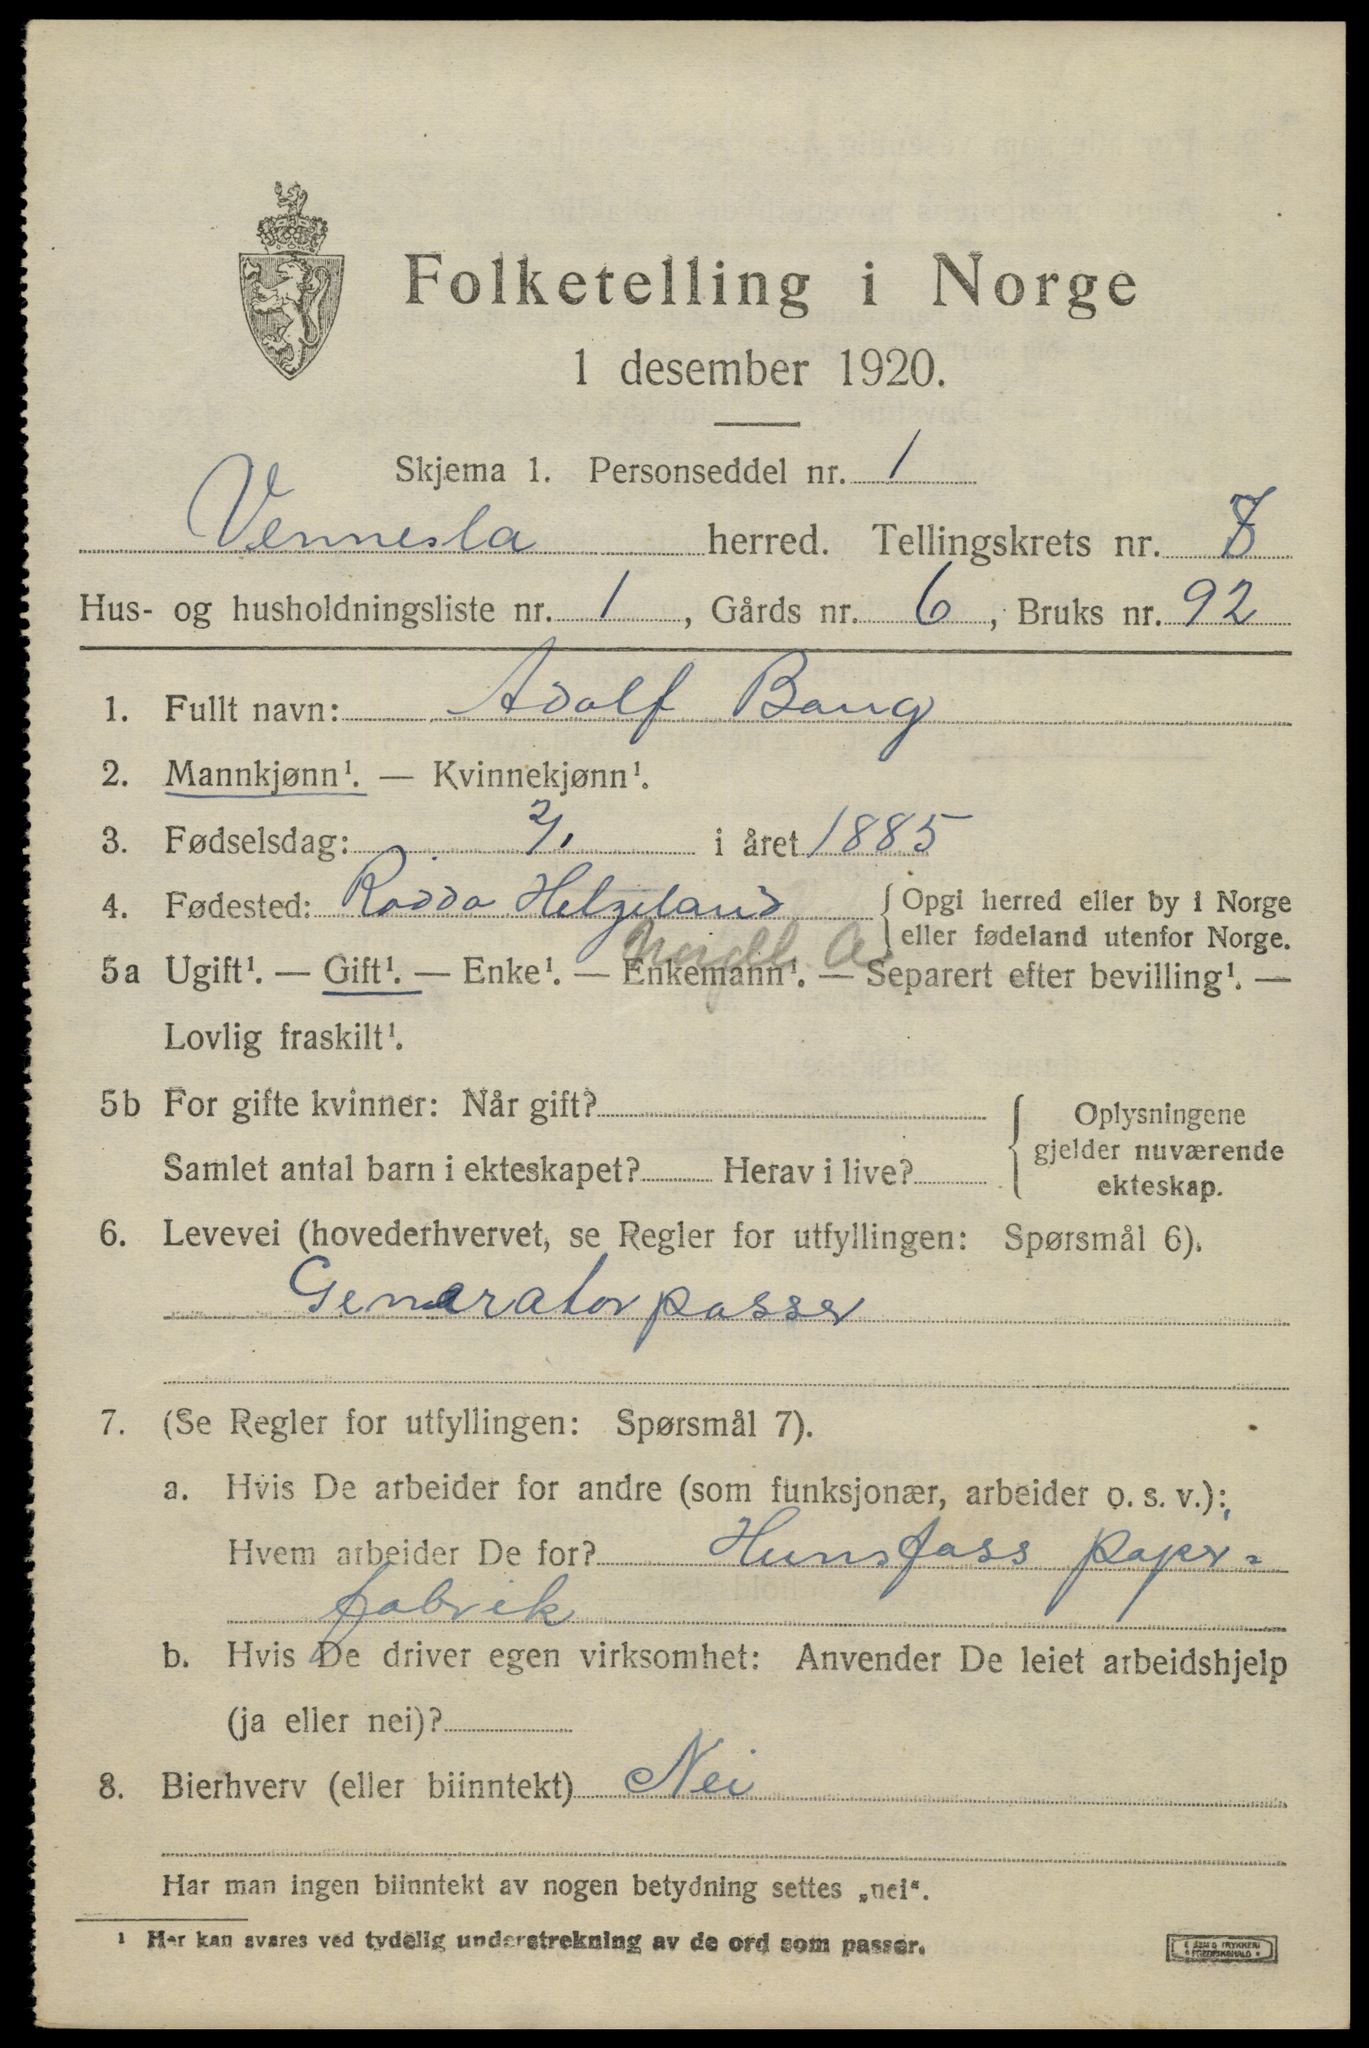 Folketelling i Norge
1 desember 1920.
Skjema 1. Personseddel nr. 1
Vennesla herred. Tellingskrets nr. 8
Hus- og husholdningsliste nr. 1, Gårds nr. 6, Bruks nr. 92
1. Fullt navn: Adolf Bang
2. Mannkjønn¹. — Kvinnekjønn¹.
3. Fødselsdag: 2/1 i året 1885
4. Fødested: Rødøo Helgeland { Opgi herred eller by i Norge
eller fødeland utenfor Norge.
5a Ugift¹. — Gift¹. — Enke¹. — Enkemann¹. — Separert efter bevilling¹. —
Lovlig fraskilt¹.
5b For gifte kvinner: Når gift? { Oplysningene
gjelder nuværende
Samlet antal barn i ekteskapet? Herav i live?
ekteskap.
6. Levevei (hovederhvervet, se Regler for utfyllingen: Spørsmål 6).
Generatorpasser
7. (Se Regler for utfyllingen: Spørsmål 7).
a. Hvis De arbeider for andre (som funksjonær, arbeider o. s. v.):
Hvem arbeider De for? Hunsfoss papir-
fabrik
b. Hvis De driver egen virksomhet: Anvender De leiet arbeidshjelp
(ja eller nei)?
8. Bierhverv (eller biinntekt) Nei
Har man ingen biinntekt av nogen betydning settes „nei“.
¹ Her kan svares ved tydelig understrekning av de ord som passer.